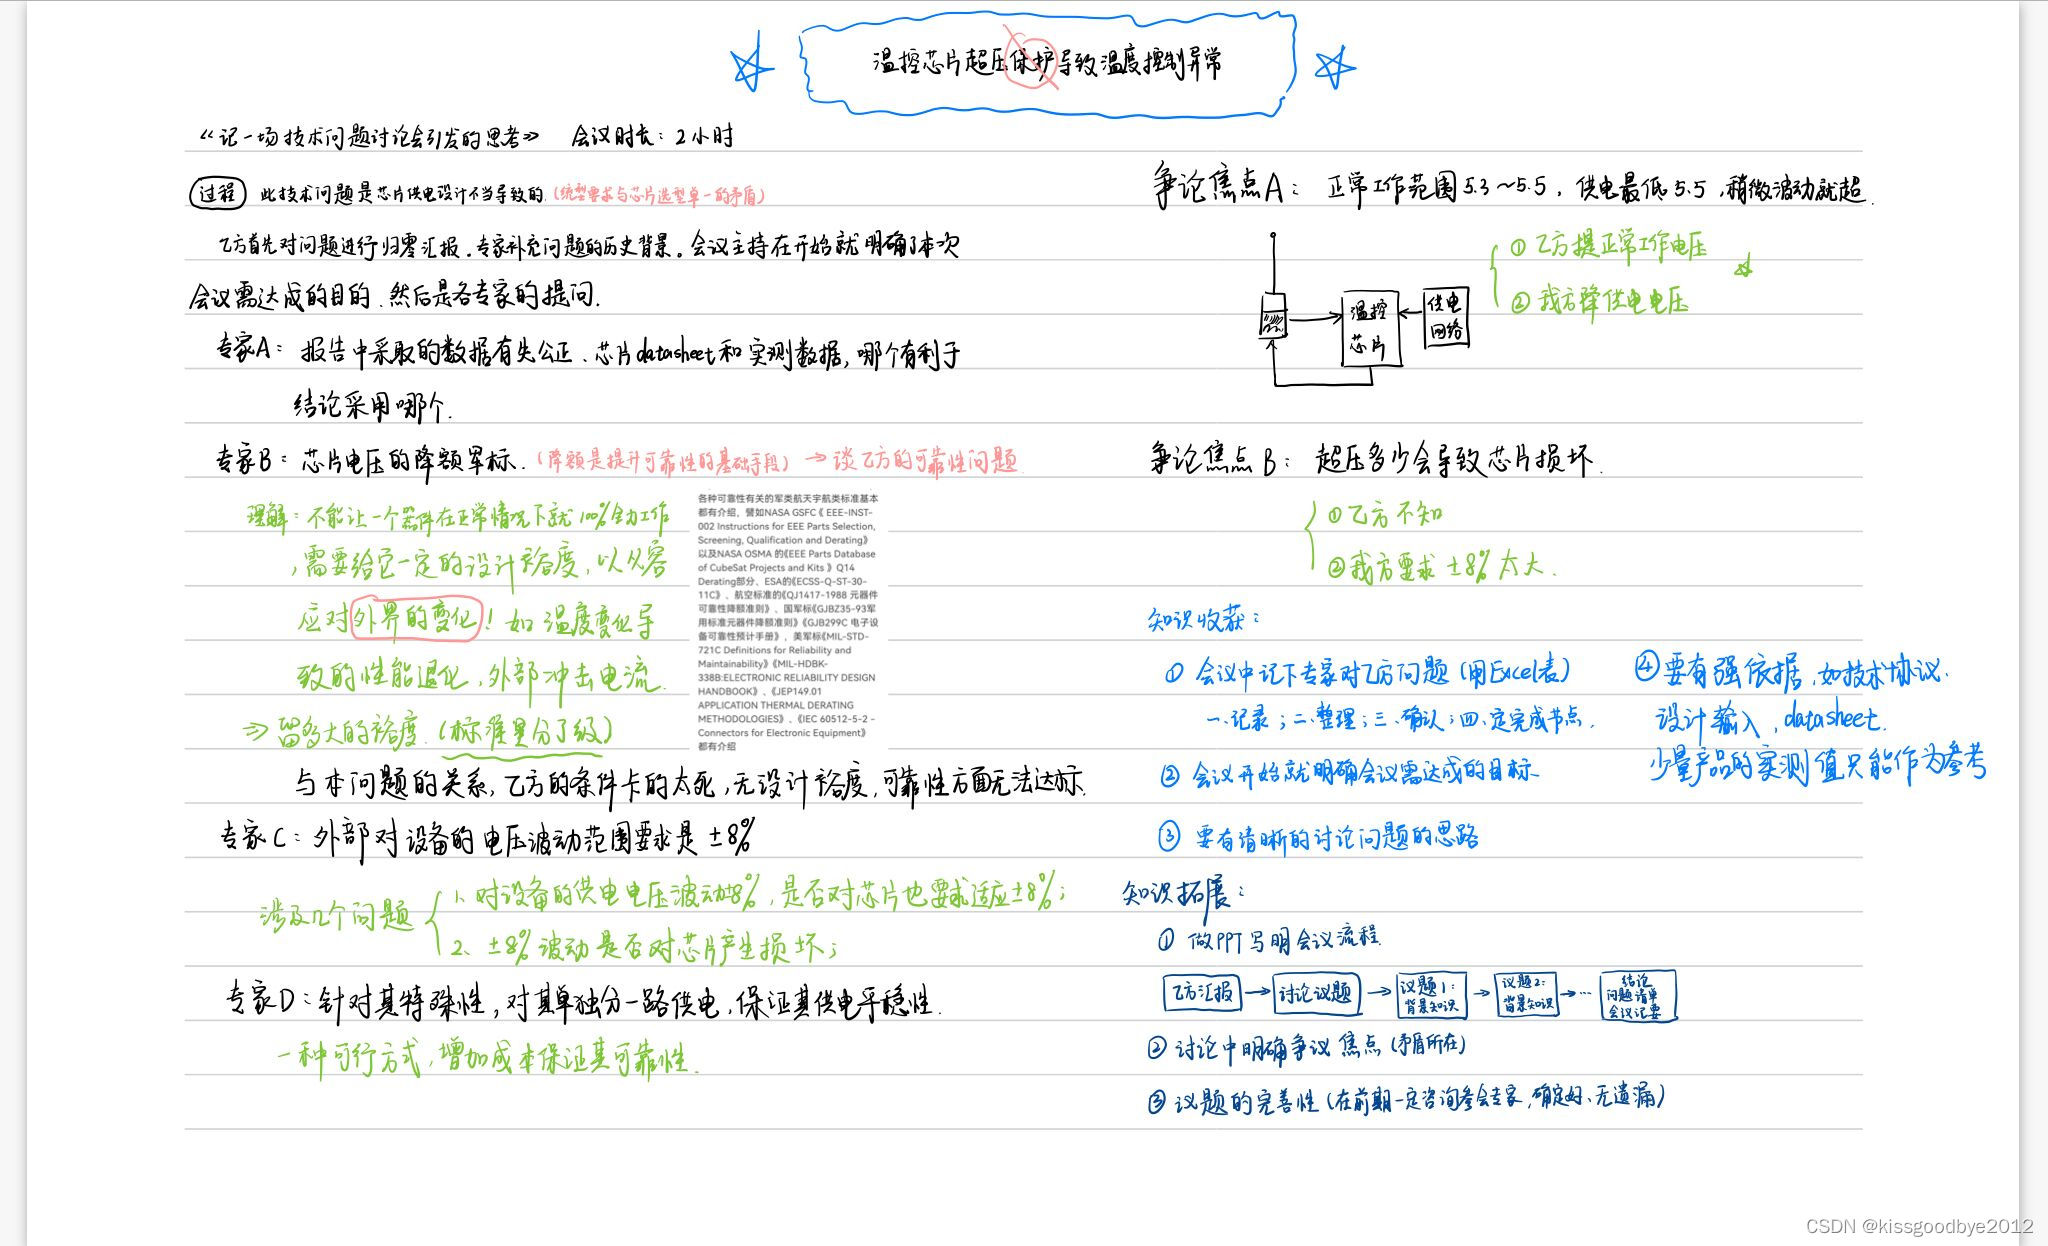 温控芯片超压保护导致温度控制异常
《记一场技术问题讨论会引发的思考》 会议时长：2小时
过程 此技术问题是芯片供电设计不当导致的.(统型要求与芯片选型单一的矛盾)
乙方首先对问题进行归零汇报.专家补充问题的历史背景。会议主持在开始就明确了本次
会议需达成的目的.然后是各专家的提问.
专家A：报告中采取的数据有失公正、芯片datasheet和实测数据,哪个有利于
结论采用哪个.
专家B：芯片电压的降额军标.(降额是提升可靠性的基础手段)→谈乙方的可靠性问题
理解：不能让一个器件在正常情况下就100%全力工作
,需要给它一定的设计裕度,以从容
应对外界的变化！如温度变化导
致的性能退化,外部冲击电流.
⇒留多大的裕度.(标准里分了级)
各种可靠性有关的军类航天宇航类标准基本
都有介绍，譬如NASA GSFC《 EEE-INST-
002 Instructions for EEE Parts Selection,
Screening, Qualification and Derating》
以及NASA OSMA 的《EEE Parts Database
of CubeSat Projects and Kits 》Q14
Derating部分、ESA的《ECSS-Q-ST-30-
11C》、航空标准的《QJ1417-1988 元器件
可靠性降额准则》、国军标《GJBZ35-93军
用标准元器件降额准则》《GJB299C 电子设
备可靠性预计手册》，美军标《MIL-STD-
721C Definitions for Reliability and
Maintainability》《MIL-HDBK-
338B:ELECTRONIC RELIABILITY DESIGN
HANDBOOK》、《JEP149.01
APPLICATION THERMAL DERATING
METHODOLOGIES》、《IEC 60512-5-2 -
Connectors for Electronic Equipment》
都有介绍
与本问题的关系,乙方的条件卡的太死,无设计裕度,可靠性方面无法达标.
专家C：外部对设备的电压波动范围要求是±8%
涉及几个问题
1、对设备的供电电压波动±8%,是否对芯片也要求适应±8%;
2、±8%波动是否对芯片产生损坏;
专家D：针对其特殊性,对其单独分一路供电,保证其供电平稳性.
一种可行方式,增加成本保证其可靠性.
争论焦点A： 正常工作范围5.3～5.5，供电最低5.5,稍微波动就超.
①乙方提正常工作电压
②我方降供电电压
温控
芯片
供电
网络
争论焦点B： 超压多少会导致芯片损坏.
①乙方不知
②我方要求±8%太大.
知识收获：
① 会议中记下专家对乙方问题(用Excel表)
一.记录；二.整理；三.确认；四.定完成节点.
② 会议开始就明确会议需达成的目标
③ 要有清晰的讨论问题的思路
④要有强依据,如技术协议.
设计输入,datasheet.
少量产品的实测值只能作为参考
知识拓展：
① 做PPT写明会议流程.
乙方汇报→讨论议题→议题1：背景知识→议题2：背景知识→…结论 问题清单 会议记要
② 讨论中明确争议焦点(矛盾所在)
③ 议题的完善性(在前期一定咨询参会专家,确定好、无遗漏)
CSDN @kissgoodbye2012